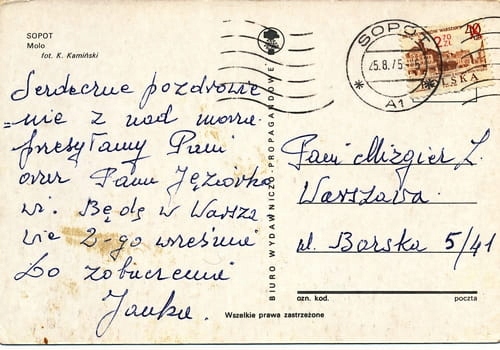 SOPOT
Molo
fot. K. Kamiński
Serdeczne pozdrowie
nie z nad morza
przesyłamy Pani
oraz Panu Jęziorko
wi. Będę w Warsza
wie 2-go września.
Do zobaczenia
Janka.
BIURO WYDAWNICZO-PROPAGANDOWE
Wszelkie prawa zastrzeżone
SOPOT
25.8.75
A1
2,70
ZŁ
40
POLSKA
Pani Mizgier Z.
Warszawa.
ul. Borska 5/41
ozn. kod.
poczta